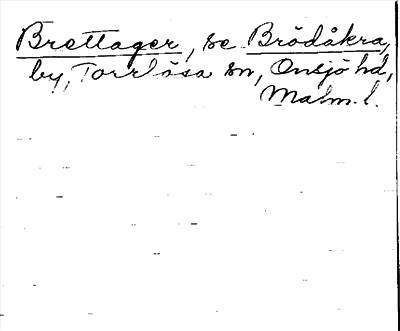 Brettager, se Brödåkra,
by, Torrlösa sn, Onsjö hd,
Malm. l.